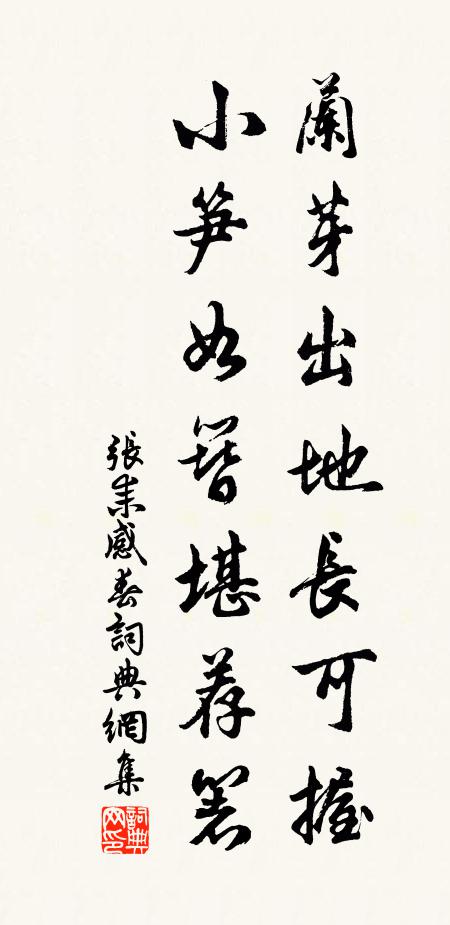 蘭芽出地長可握
小笋如簪堪荐箸
張耒感春詞典網集
詞典网印